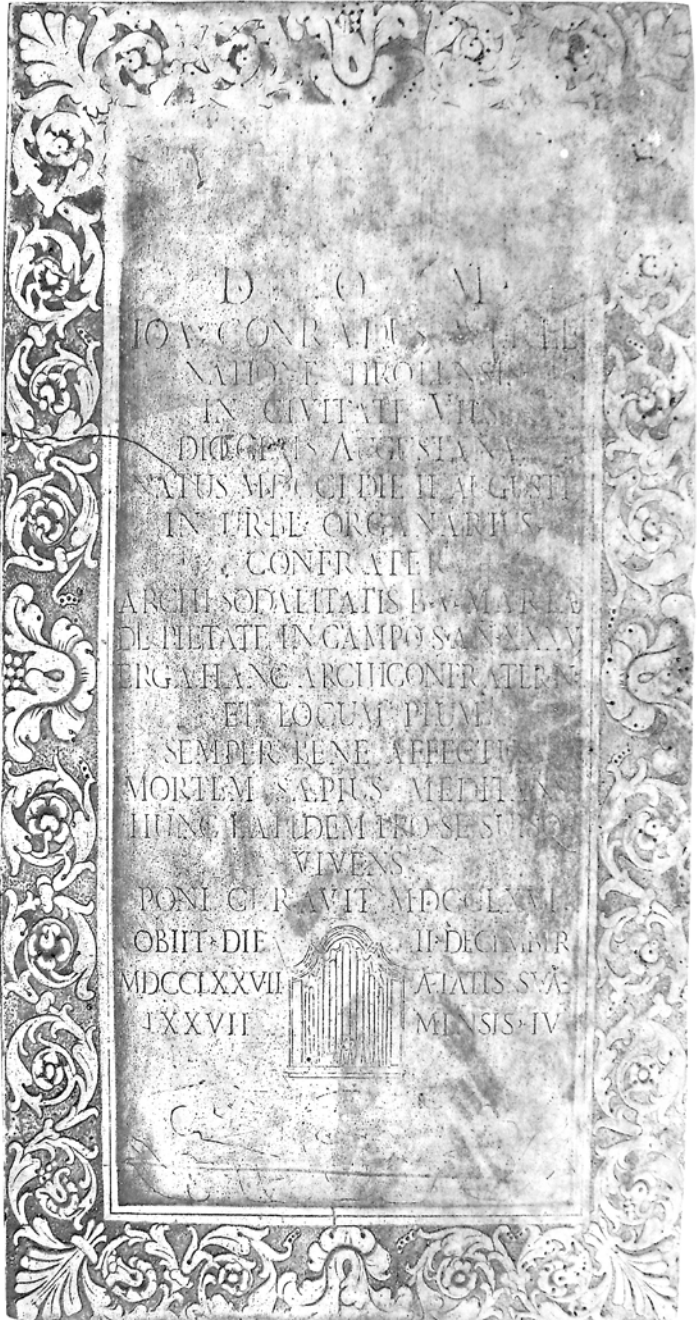 D O M
IOA CONRADUS
NATIONE TIROLENSIS
IN CIVITATE VILS
DIŒCESIS AUGUSTANÆ
NATUS MDCCI DIE II AUGUSTI
IN URBE ORGANARIUS
CONFRATER
ARCHISODALITATIS B·V·MARIÆ
DE PIETATE IN CAMPO S·AN·XXXV
ERGA HANC ARCHICONFRATERN
ET LOCUM PIUM
SEMPER BENE AFFECTUS
MORTEM SÆPIUS MEDITANS
HUNC LAPIDEM PRO SE SUISQ
VIVENS
PONI CURAVIT MDCCLXVI
OBIIT·DIE II·DECEMBER
MDCCLXXVII ÆTATIS SVÆ
LXXVII MENSIS·IV